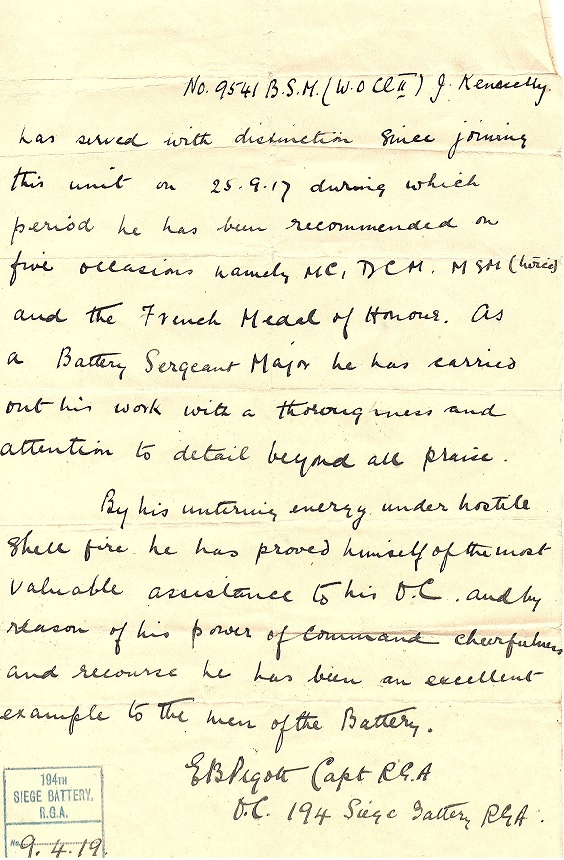 No. 9541 B.S.M. (W.O Cl II) J. Kenneally.
has served with distinction since joining
this unit on 25.9.17 during which
period he has been recommended on
five occasions namely MC, DCM. MSM (twice)
and the French Medal of Honour. As
a Battery Sergeant Major he has carried
out his work with a thoroughness and
attention to detail beyond all praise.
By his untiring energy under hostile
shell fire he has proved himself of the most
valuable assistance to his O.C. and by
reason of his power of command cheerfulness
and recourse he has been an excellent
example to the men of the Battery.
EBPigott Capt RGA
O.C. 194 Siege Battery RGA.
194TH
SIEGE BATTERY,
R.G.A.
No. 9.4.19